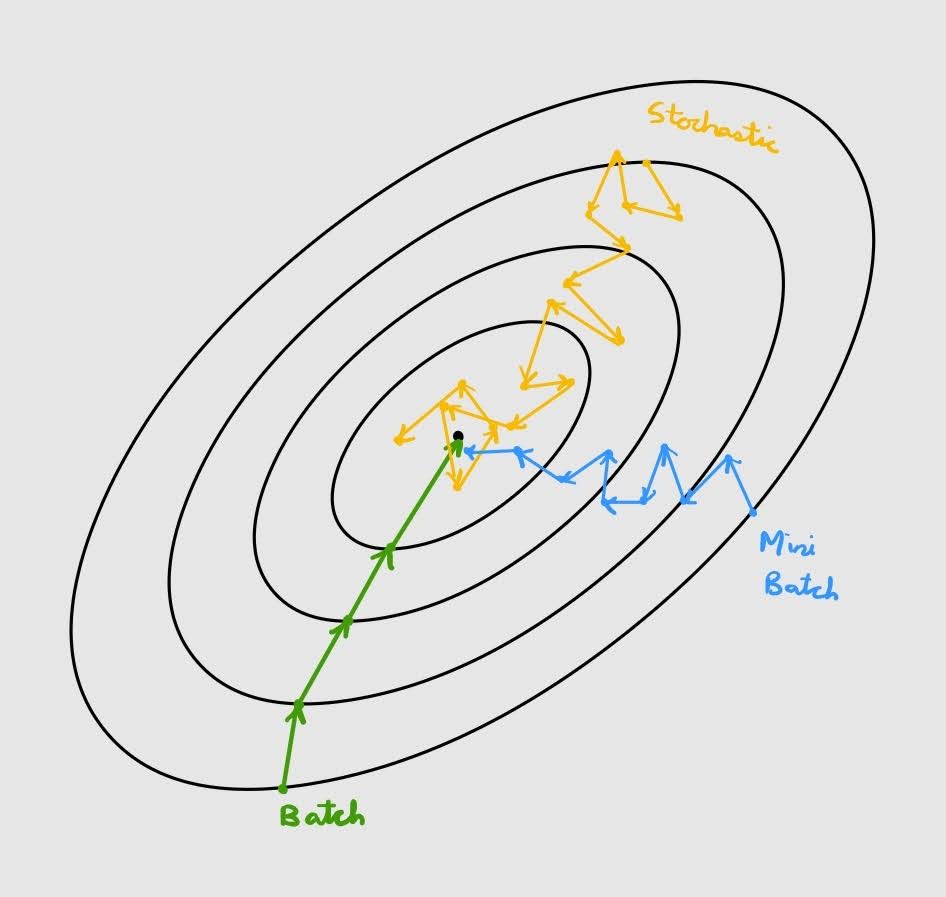 Stochastic
Mini
Batch
Batch